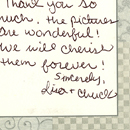 Thank you so
much, the pictures
are wonderful!
We will cherish
them forever!
Sincerely,
Lisa + Chuck